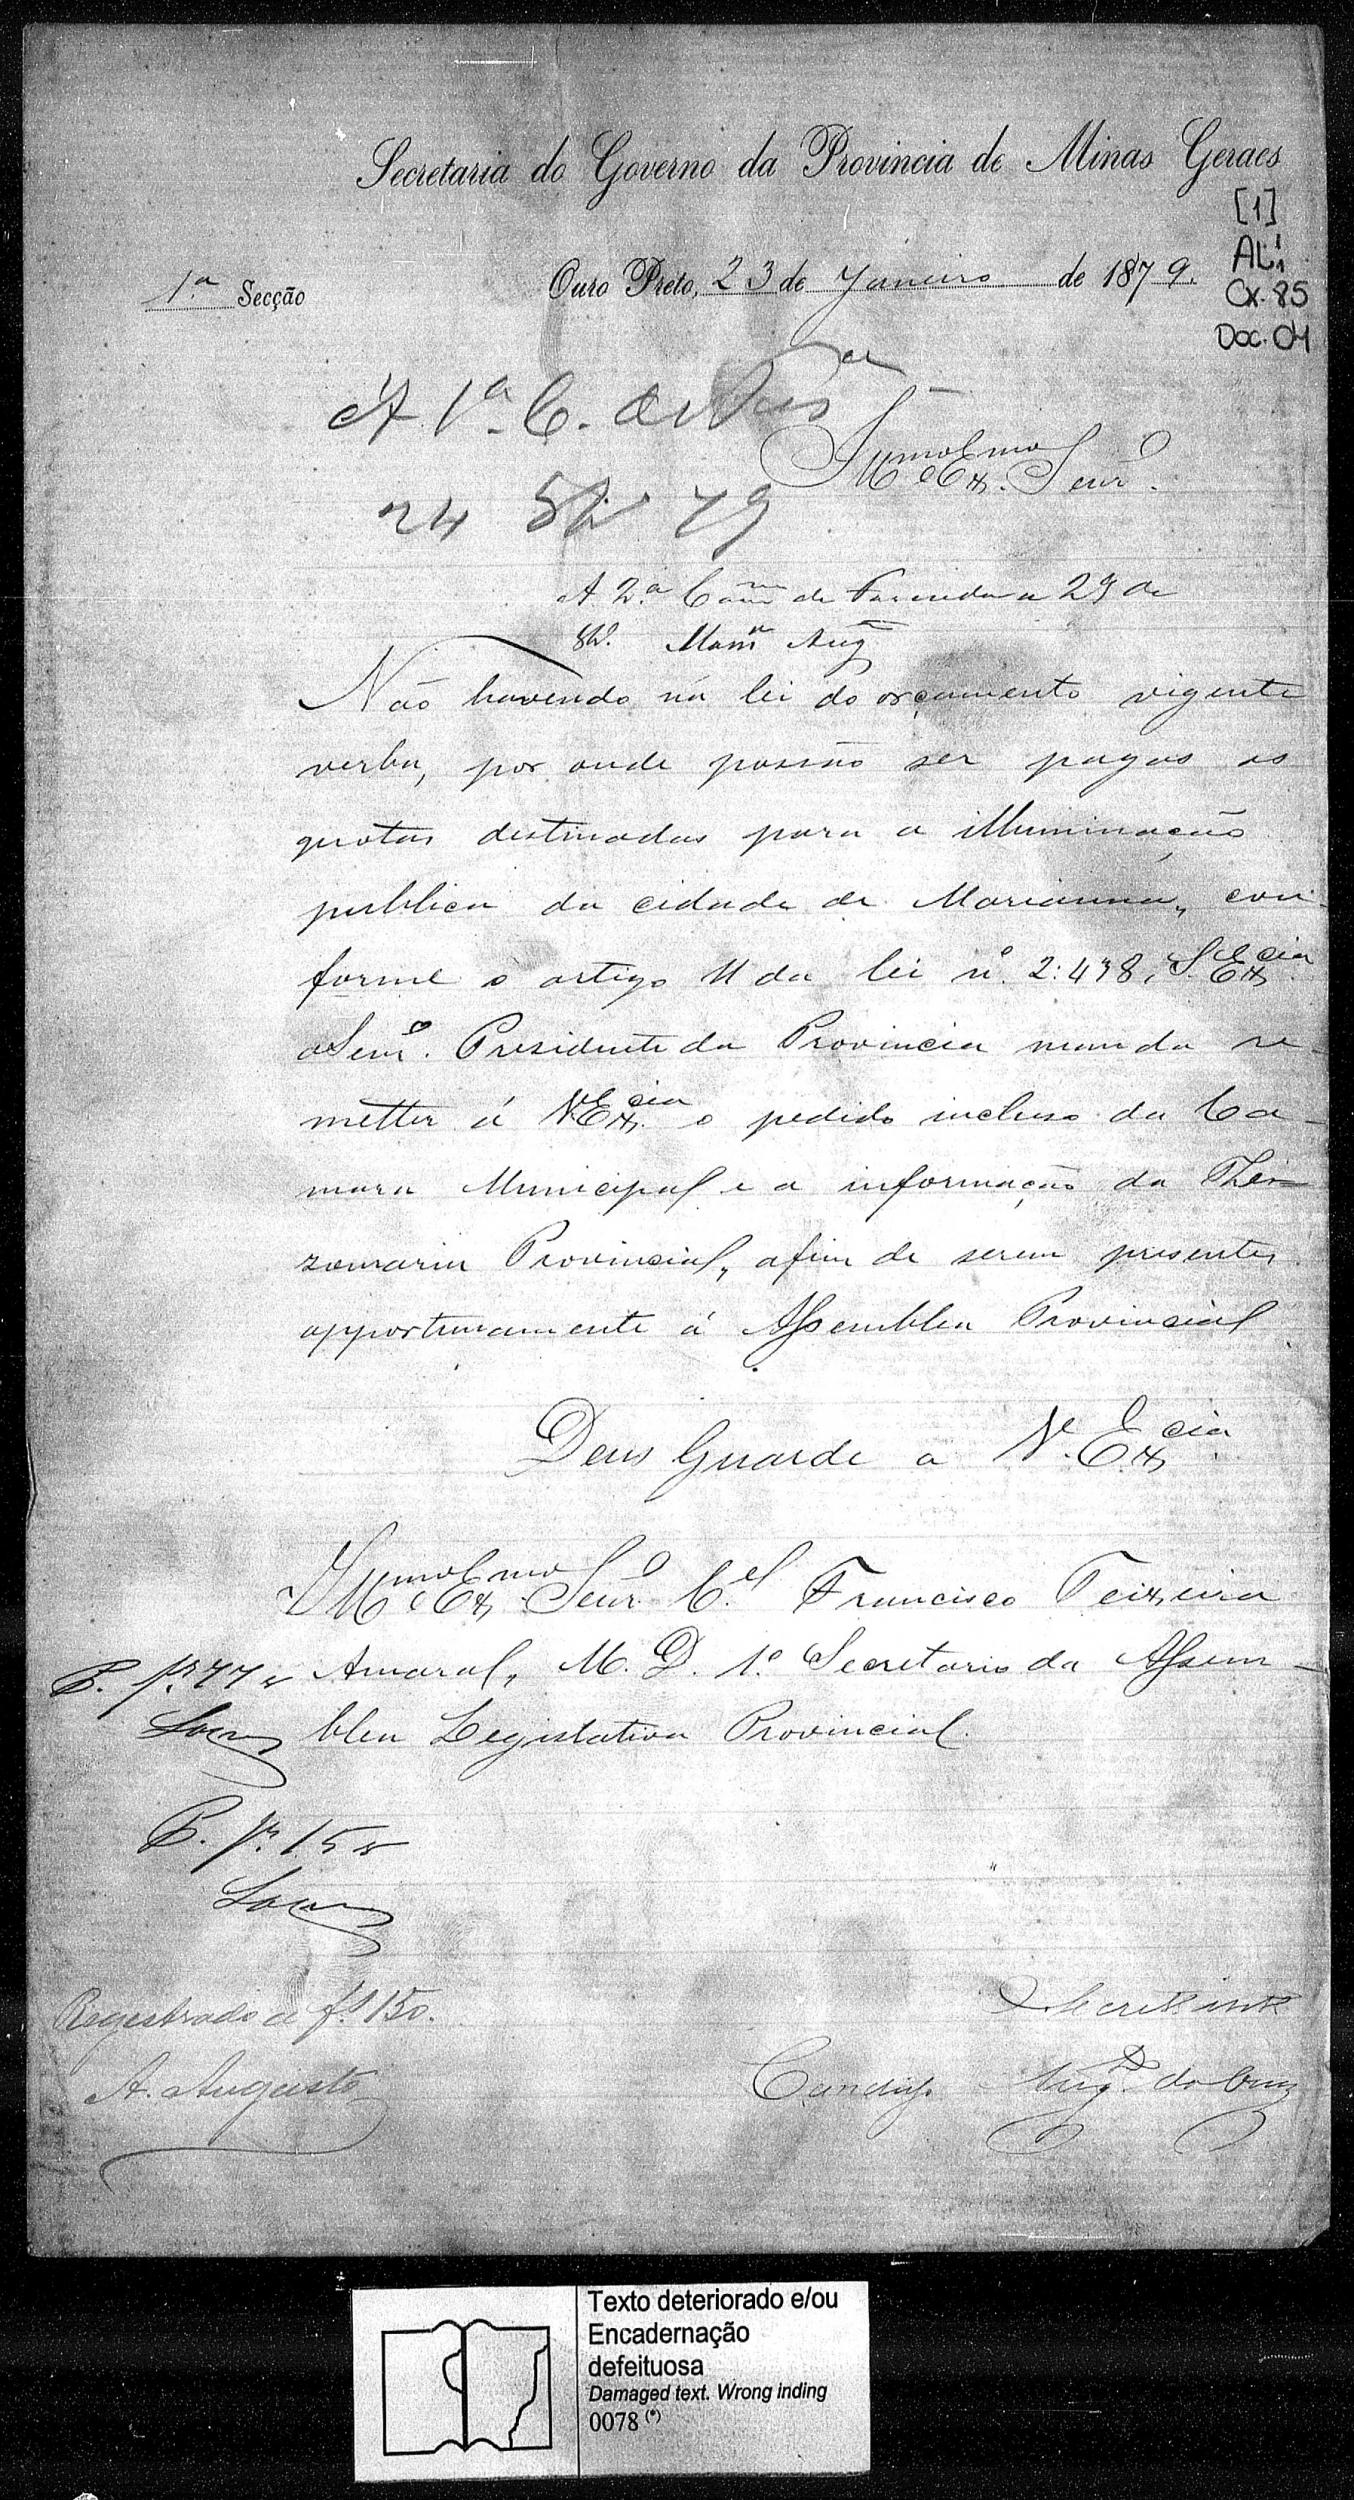 Secretaria do Governo da Provincia de Minas Geraes
[1]
AL 1
Cx. 85
Doc. 04
1.ª Secção
Ouro Preto, 23 de Janeiro de 1879.
Á 1ª C. de
24 8bro 79
Illmo e Exmo Senr.
A 2.ª Comm de Fazenda a 29 de
8bro. Mam Aug
Não havendo na lei do orçamento vigente
verba, por onde possão ser pagas as
quotas destinadas para a illuminação
publica da cidade de Marianna, con-
forme o artigo 11 da lei nº 2:498, S. Excia
o Senr. Presidente da Provincia manda re-
metter á V. Excia o pedido incluso da Ca-
mara Municipal e a informação da Thez-
zouraria Provincial, afim de serem presentes
opportunamente á Assemblea Provincial.
Deus Guarde a V. Excia
Illmo e Exmo Senr. Cel Francisco Teixeira
Amaral, M. D. 1º Secretario da Assem-
blea Legislativa Provincial.
P. p. 77 v
P. p. 15 v
Registrado a fl 150.
A. Augusto
O Secretario
Candido Augto da Cruz
Texto deteriorado e/ou
Encadernação
defeituosa
Damaged text. Wrong inding
0078 (*)